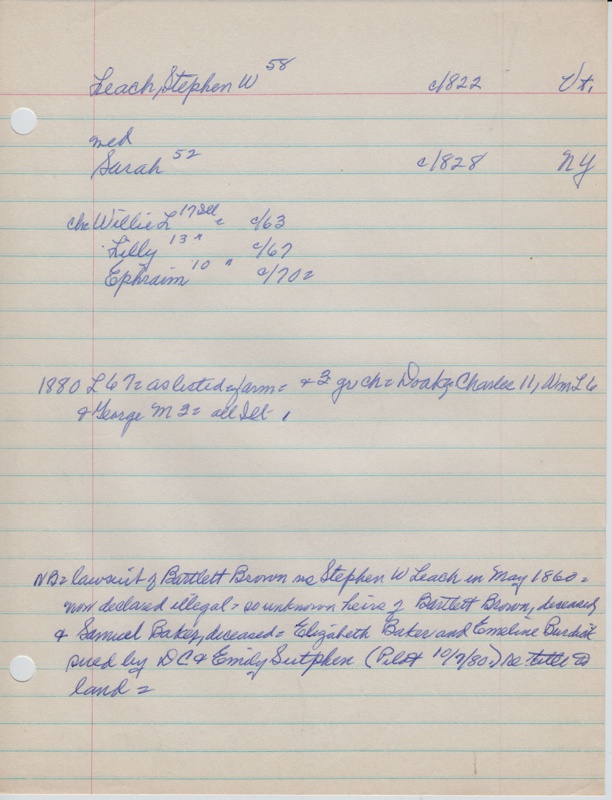 Leach, Stephen W 58 c/1822 Vt.
med
Sarah 52 c/1828 NY
ch= Willie L 17 Ill = c/63
Lilly 13 " c/67
Ephraim 10 " c/70=
1880 L 67= as listed= farm= + 3 gr ch= Doak= Charles 11, Wm L 6
+ George M 3= all Ill.
NB= lawsuit of Bartlett Brown vs Stephen W Leach in May 1860=
now declared illegal= so unknown heirs of Bartlett Brown, deceased,
+ Samuel Baker, deceased= Elizabeth Baker and Emeline Burdick
sued by DC + Emily Sutphen (Pilot 10/7/80.) re title to
land=